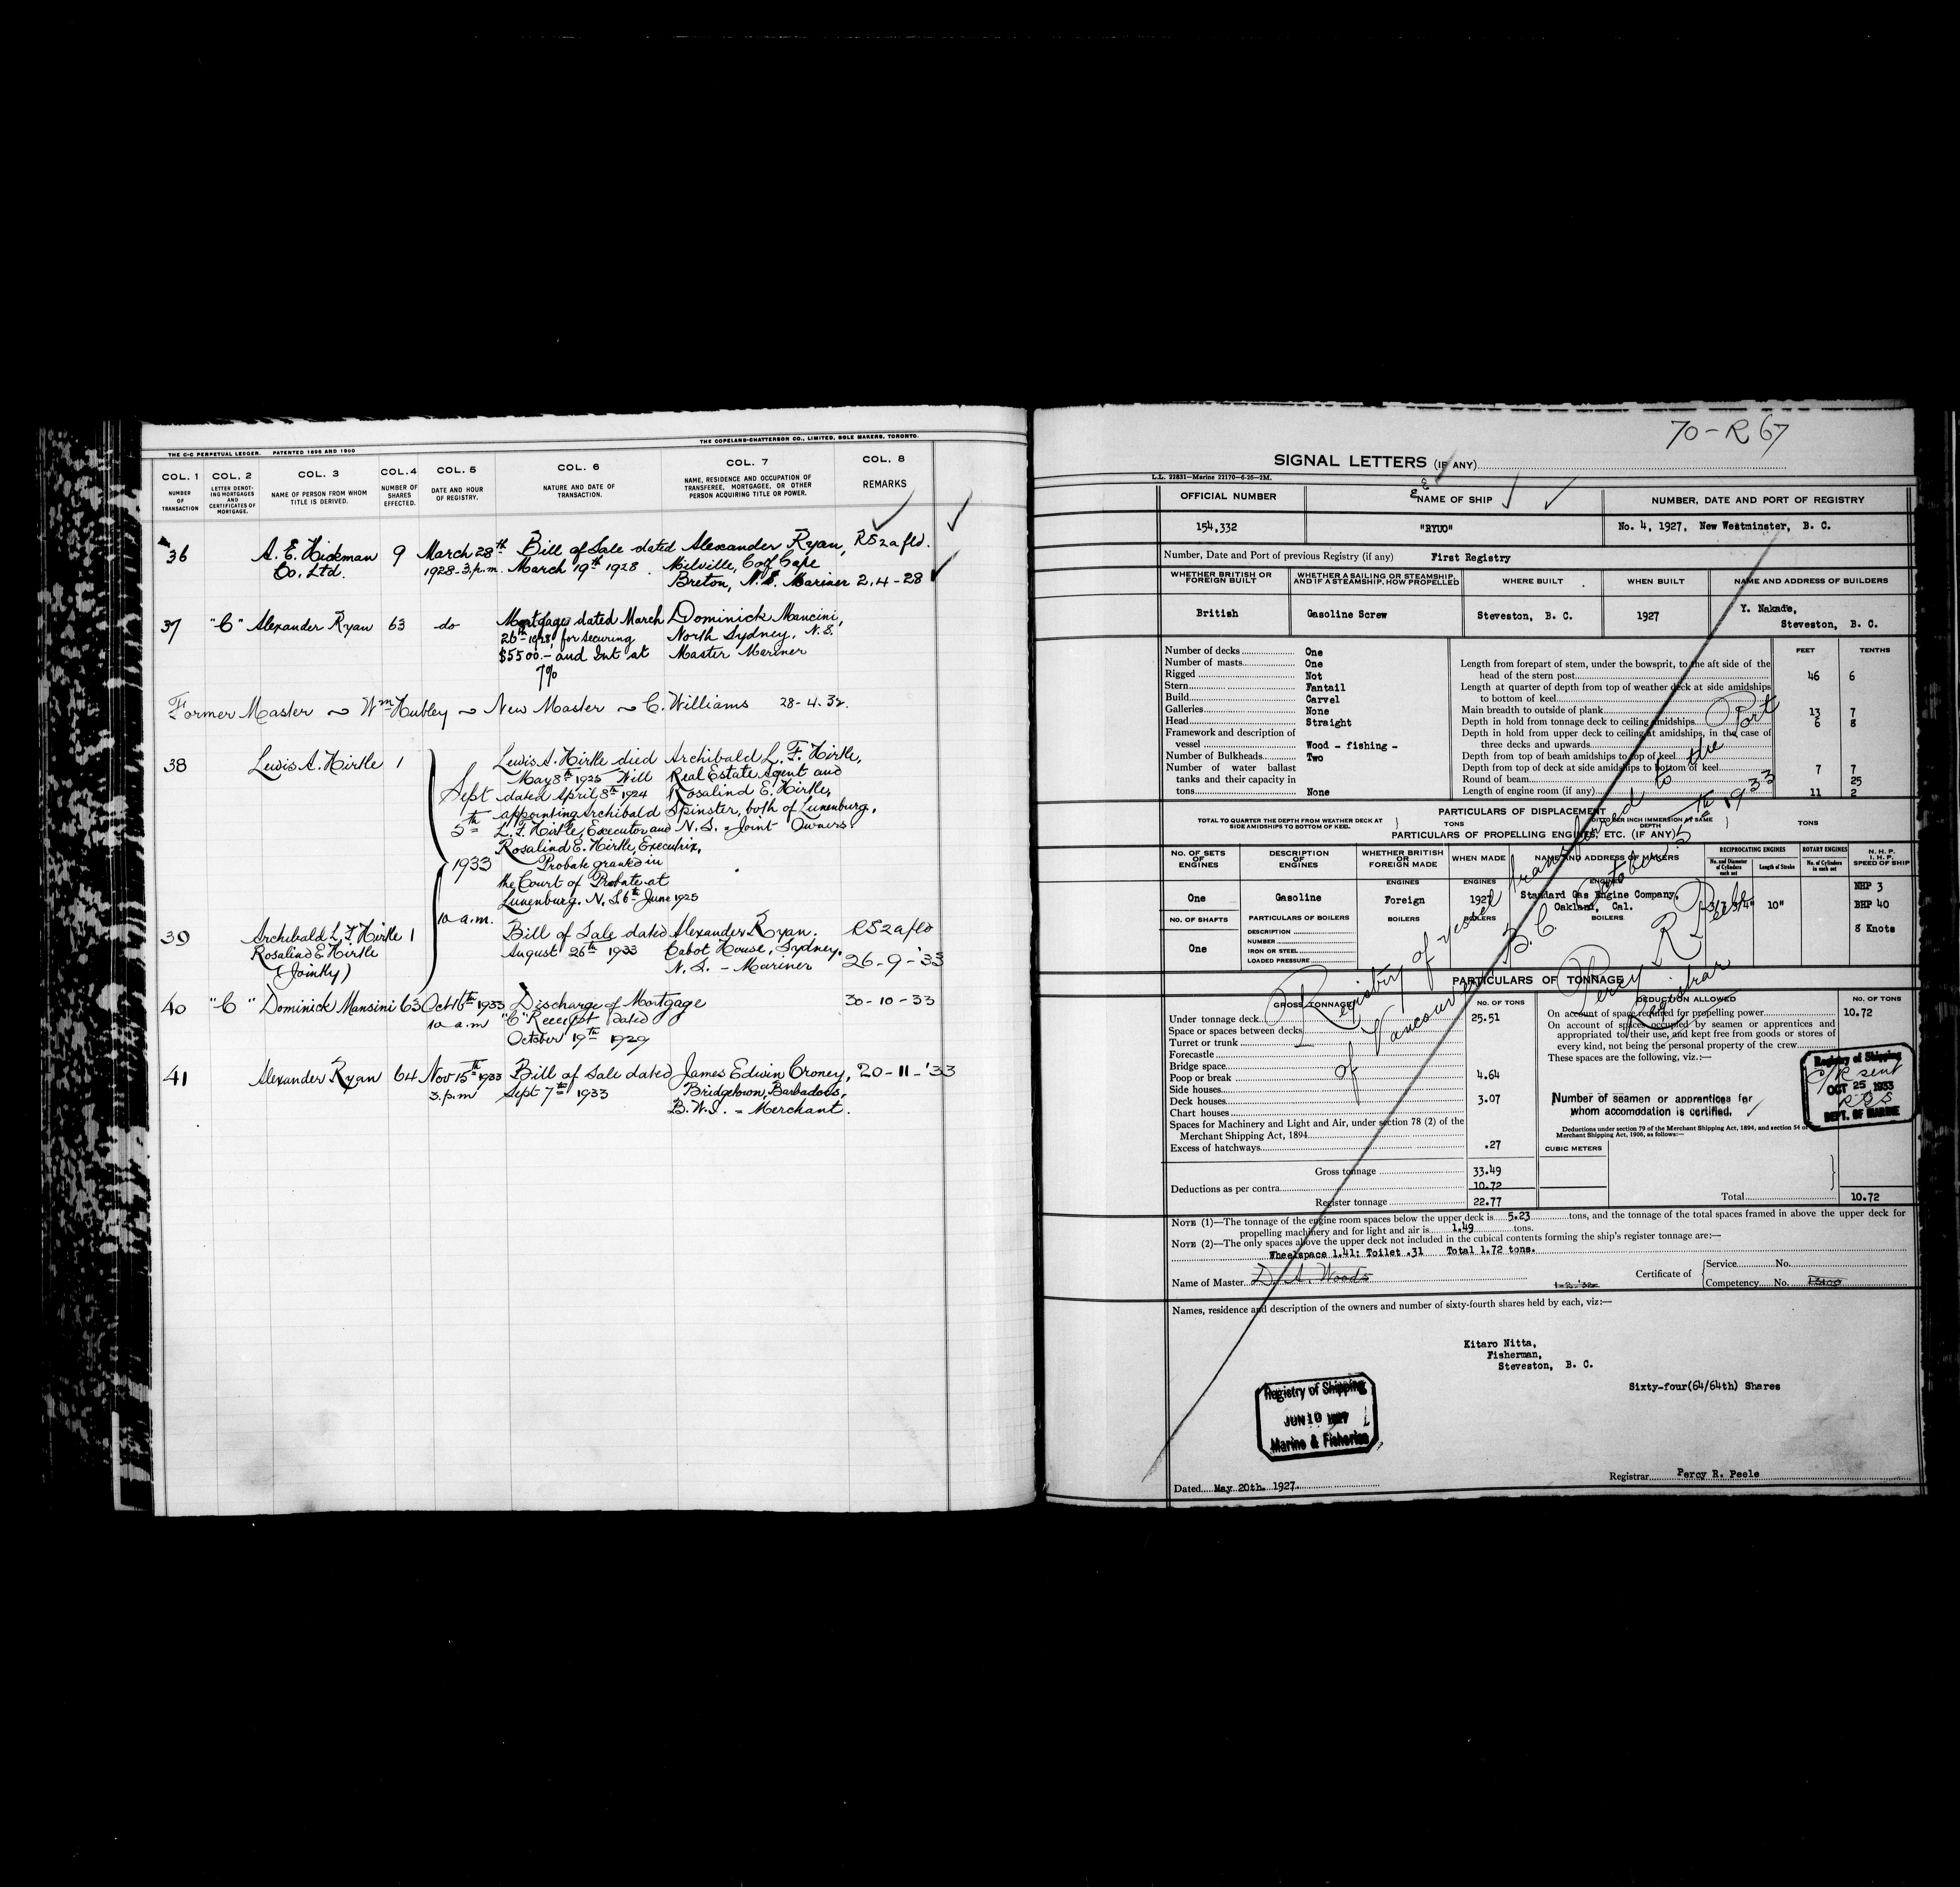 THE C-C PERPETUAL LEDGER. PATENTED 1898 AND 1900
THE COPELAND-CHATTERSON CO., LIMITED, SOLE MAKERS, TORONTO.
COL. 1 COL. 2 COL. 3 COL. 4 COL. 5 COL. 6 COL. 7 COL. 8
NUMBER OF TRANSACTION
LETTER DENOTING MORTGAGES AND CERTIFICATES OF MORTGAGE.
NAME OF PERSON FROM WHOM TITLE IS DERIVED.
NUMBER OF SHARES EFFECTED.
DATE AND HOUR OF REGISTRY.
NATURE AND DATE OF TRANSACTION.
NAME, RESIDENCE AND OCCUPATION OF TRANSFEREE, MORTGAGEE, OR OTHER PERSON ACQUIRING TITLE OR POWER.
REMARKS
36 A. E. Hickman 9 March 28th Bill of Sale dated Alexander Ryan, R52a fld.
Co. Ltd. 1928-3.p.m. March 19th 1928. Melville, Co of Cape
Breton, N.S. Mariner 2.4-28
37 "C" Alexander Ryan 63 do Mortgage dated March Dominick Mancini,
26th 1928, for securing North Sydney, N.S.
$5500.- and Int at Master Mariner
7%
Former Master ~ Wm Hubley ~ New Master ~ C. Williams 28-4.32.
38 Lewis A. Hirtle 1 Lewis A. Hirtle died Archibald L. F. Hirtle,
May 8th 1925 Will Real Estate Agent and
Sept dated April 8th 1924 Rosalind E. Hirtle,
appointing Archibald Spinster, both of Lunenburg,
5th L. F. Hirtle, Executor and N.S. = Joint Owners
Rosalind E. Hirtle, Executrix,
1933 Probate granted in
the Court of Probate at
Lunenburg. N.S. 6th June 1925
10 a.m.
39 Archibald L. F. Hirtle 1 Bill of Sale dated Alexander Ryan. R52a fld
Rosalind E Hirtle August 26th 1933 Cabot House, Sydney, 26-9-'33
(Jointly) N.S. - Mariner
40 "C" Dominick Mansini 63 Oct 16th 1933 Discharge of Mortgage 30-10-33
10 a.m "C" Receipt dated
October 19th 1929
41 Alexander Ryan 64 Nov 15th 1933 Bill of Sale dated James Edwin Croney, 20-11-'33
3.p.m Sept 7th 1933 Bridgetown, Barbados,
B.W.I. = Merchant.
70-R 67
SIGNAL LETTERS (IF ANY)
L.L. 22831—Marine 22170—6-26—2M.
OFFICIAL NUMBER NAME OF SHIP NUMBER, DATE AND PORT OF REGISTRY
154,332 "RYUO" No. 4, 1927, New Westminster, B. C.
Number, Date and Port of previous Registry (if any) First Registry
WHETHER BRITISH OR FOREIGN BUILT
WHETHER A SAILING OR STEAMSHIP, AND IF A STEAMSHIP, HOW PROPELLED
WHERE BUILT WHEN BUILT NAME AND ADDRESS OF BUILDERS
British Gasoline Screw Steveston, B. C. 1927 Y. Nakade,
Steveston, B. C.
Number of decks One
Number of masts One
Rigged Not
Stern Fantail
Build Carvel
Galleries None
Head Straight
Framework and description of
vessel Wood - fishing -
Number of Bulkheads Two
Number of water ballast
tanks and their capacity in
tons None
FEET TENTHS
Length from forepart of stem, under the bowsprit, to the aft side of the
head of the stern post 46 6
Length at quarter of depth from top of weather deck at side amidships
to bottom of keel
Main breadth to outside of plank 13 7
Depth in hold from tonnage deck to ceiling amidships 6 8
Depth in hold from upper deck to ceiling at amidships, in the case of
three decks and upwards
Depth from top of beam amidships to top of keel
Depth from top of deck at side amidships to bottom of keel 7 7
Round of beam 25
Length of engine room (if any) 11 2
PARTICULARS OF DISPLACEMENT
TOTAL TO QUARTER THE DEPTH FROM WEATHER DECK AT SIDE AMIDSHIPS TO BOTTOM OF KEEL. TONS
DITTO PER INCH IMMERSION AT SAME DEPTH TONS
PARTICULARS OF PROPELLING ENGINES, ETC. (IF ANY)
NO. OF SETS OF ENGINES
DESCRIPTION OF ENGINES
WHETHER BRITISH OR FOREIGN MADE
WHEN MADE
NAME AND ADDRESS OF MAKERS
RECIPROCATING ENGINES
No. and Diameter of Cylinders each set
Length of Stroke
ROTARY ENGINES
No. of Cylinders in each set
N. H. P. I. H. P. SPEED OF SHIP
ENGINES ENGINES ENGINES
One Gasoline Foreign 1927 Standard Gas Engine Company,
Oakland, Cal. 10"
NHP 3
BHP 40
8 Knots
NO. OF SHAFTS PARTICULARS OF BOILERS BOILERS BOILERS BOILERS
One
DESCRIPTION
NUMBER
IRON OR STEEL
LOADED PRESSURE
PARTICULARS OF TONNAGE
GROSS TONNAGE NO. OF TONS
Under tonnage deck 25.51
Space or spaces between decks
Turret or trunk
Forecastle
Bridge space
Poop or break 4.64
Side houses
Deck houses 3.07
Chart houses
Spaces for Machinery and Light and Air, under section 78 (2) of the
Merchant Shipping Act, 1894
Excess of hatchways .27
Gross tonnage 33.49
Deductions as per contra 10.72
Register tonnage 22.77
DEDUCTION ALLOWED NO. OF TONS
On account of space required for propelling power 10.72
On account of spaces occupied by seamen or apprentices and
appropriated to their use, and kept free from goods or stores of
every kind, not being the personal property of the crew
These spaces are the following, viz.:—
Number of seamen or apprentices for
whom accomodation is certified.
Deductions under section 79 of the Merchant Shipping Act, 1894, and section 54 of
Merchant Shipping Act, 1906, as follows:—
CUBIC METERS
Total 10.72
Registry of Shipping
C/R sent
OCT 25 1933
DEPT. OF MARINE
Registry of vessel transferred to the Port
of Vancouver B.C. October 5th 1933
Percy R Peele
Registrar
NOTE (1)—The tonnage of the engine room spaces below the upper deck is 5.23 tons, and the tonnage of the total spaces framed in above the upper deck for
propelling machinery and for light and air is 1.49 tons.
NOTE (2)—The only spaces above the upper deck not included in the cubical contents forming the ship's register tonnage are:—
Wheelspace 1.41: Toilet .31 Total 1.72 tons.
Name of Master D. A. Woods
Certificate of Service No.
Competency No.
Names, residence and description of the owners and number of sixty-fourth shares held by each, viz:—
Kitaro Nitta,
Fisherman,
Steveston, B. C.
Sixty-four(64/64th) Shares
Registry of Shipping
JUN 10 1927
Marine & Fisheries
Dated May 20th. 1927.
Registrar Percy R. Peele